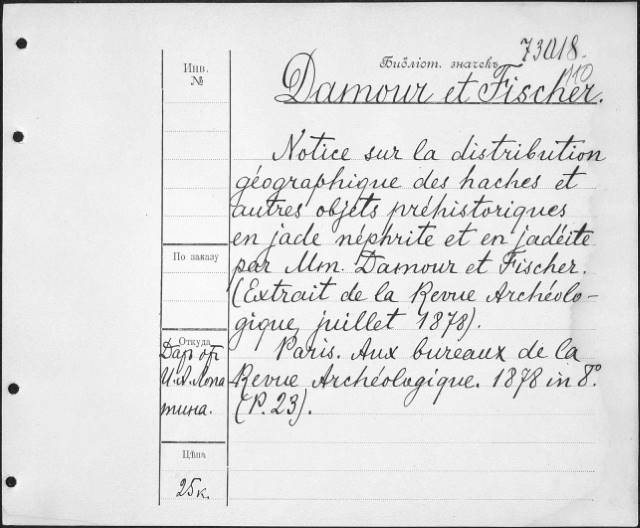 Библіот. значекъ 73018.
110
Damour et Fischer.
Инв.
№
Notice sur la distribution
géographique des haches et
autres objets préhistoriques
en jade néphrite et en jadéite
par Mm. Damour et Fischer.
(Extrait de la Revue Archéolo-
gique, juillet 1878).
Paris. Aux bureaux de la
Revue Archéologique. 1878 in 8°.
(P. 23).
По заказу
Откуда
Даръ отъ
И.А. Лопа
тина.
Цѣна
25 к.